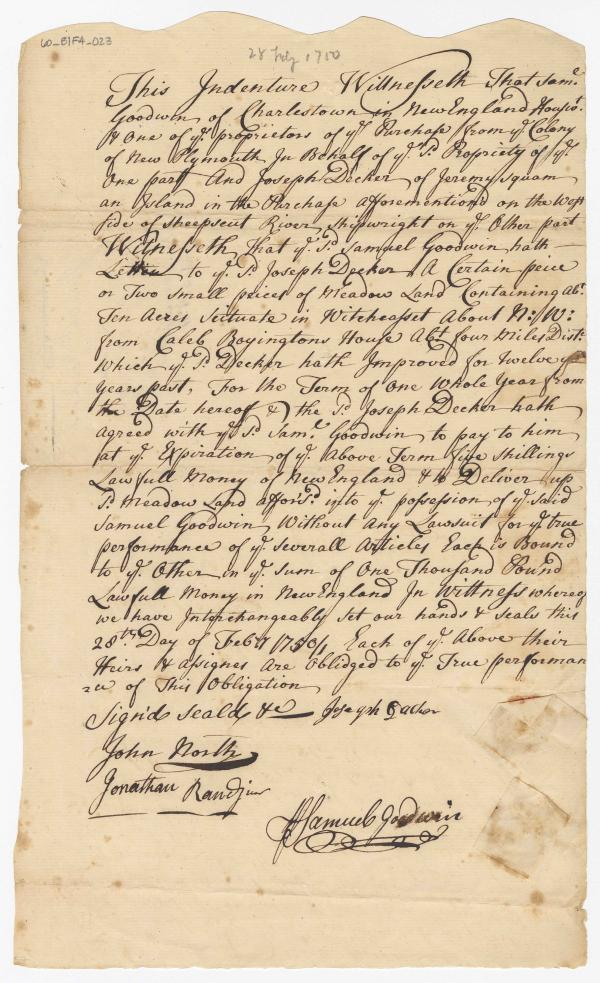 60_B1F4_023
28 Feby 1750
This Indenture Wittnesseth That Sam.l
Goodwin of Charlestown in New England Housr.
& One of ye. proprietors of ye Purchase from ye Colony
of New Plymouth In Behalf of ye. sd. Propriety of ye.
One part And Joseph Decker of Jeremy Squam
an Island in the Purchase afforementiond on the West
side of Sheepscut River Shipwright on ye. Other part
Witnesseth That ye. sd. Samuel Goodwin hath
Letten to ye. sd. Joseph Decker A Certain peice
or Two small peices of Meadow Land Containing abt.
Ten Acres Scituate in Witcheasset About N: W:
from Caleb Boyingtons House Abt. four Miles Dist:
Which ye. sd. Decker hath Improved for Twelve
Years past, For the Term of One Whole Year from
the Date hereof & the sd. Joseph Decker hath
agreed with ye. sd. Saml. Goodwin to pay to him
at ye. Expiration of ye. Above Term five shillings
Lawfull Money of New England & to Deliver up
sd. Meadow Land afforsd. into ye. possession of ye. said
Samuel Goodwin Without Any Lawsuit for ye. true
performance of ye. severall Articles Each is Bound
to ye. Other in ye. Sum of One Thousand Pound
Lawfull Money in New England In Wittness whereof
we have Interchangeably set our hands & seals this
28th. Day of Feby 1750/1 Each of ye. Above their
Heirs & assignes Are Oblidged to ye. True performan
ce of This Obligation
Sign'd Seald &c Joseph Decker
John North
Jonathan
Samuel Goodwin